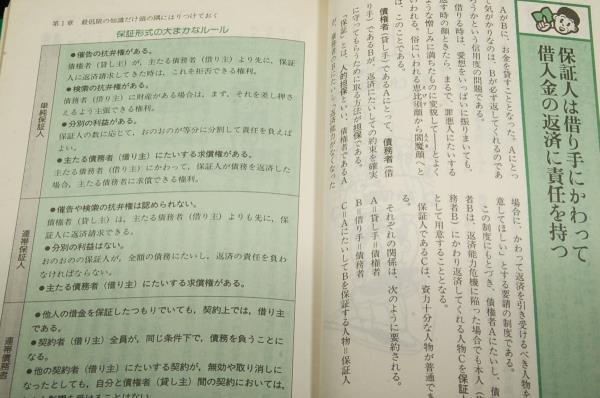 保証人は借り手にかわって
借入金の返済に責任を持つ
AがBに、お金を貸すこととなった。Aにとっ
て気がかりなのは、Bが必ず返してくれるのであ
ろうかという信用度の問題である。
借りる時は、愛想をいっぱいに振りまいても、
返す時の顔ときたら、まるで、罪悪人にたいする
ような憎しみに満ちたものに変貌して――とよく
いわれる。俗にいわれる恵比須顔から閻魔顔へと
は、このことである。
債権者（貸し手）であるAにとって、債務者（借
り手）であるBが、返済にたいしての約束を確実
に守ってもらうために取る方法が担保である。
「保証」とは、人的担保といい、債権者であるA
返済能力がなくなった
場合に、かわって返済を引き受けるべき人物を
意してほしい」とする要請の制度である。
この制度にもとづき、債権者Aにたいし、債
者Bは、返済能力危機に陥った場合でも本人（
務者B）にかわり返済してくれる人物Cを保証
として用意することとなる。
保証人であるCは、資力十分な人物が普通であ
る。
それぞれの関係は、次のように要約される。
A＝貸し手＝債権者
B＝借り手＝債務者
C＝AにたいしてBを保証する人物＝保証人
第1章 最低限の知識だけ頭の隅にはりつけておく
保証形式の大まかなルール
単純保証人
●催告の抗弁権がある。
債権者（貸し主）が、主たる債務者（借り主）より先に、保証
人に返済請求してきた時は、これを拒否できる権利。
●検索の抗弁権がある。
債務者（借り主）に財産がある場合は、まず、それを差し押さ
えるよう主張できる権利。
●分別の利益がある。
保証人の数に応じて、おのおのが等分に分割して責任を負えば
よい。
●主たる債務者（借り主）にたいする求償権がある。
主たる債務者（借り主）にかわって、保証人が債務を返済した
場合、主たる債務者に求償できる権利。
連帯保証人
●催告や検索の抗弁権は認められない。
債権者（貸し主）は、主たる債務者（借り主）よりも先に、保
証人に返済請求できる。
●分別の利益はない。
おのおのの保証人が、全額の債務にたいし、返済の責任を負わ
なければならない。
●主たる債務者（借り主）にたいする求償権がある。
連帯債務者
●他人の借金を保証したつもりでいても、契約上では、借り主
である。
●契約者（借り主）全員が、同じ条件下で、債務を負うことに
なる。
●他の契約者（借り主）にたいする契約が、無効や取り消しに
なったとしても、自分と債権者（貸し主）間の契約においては、